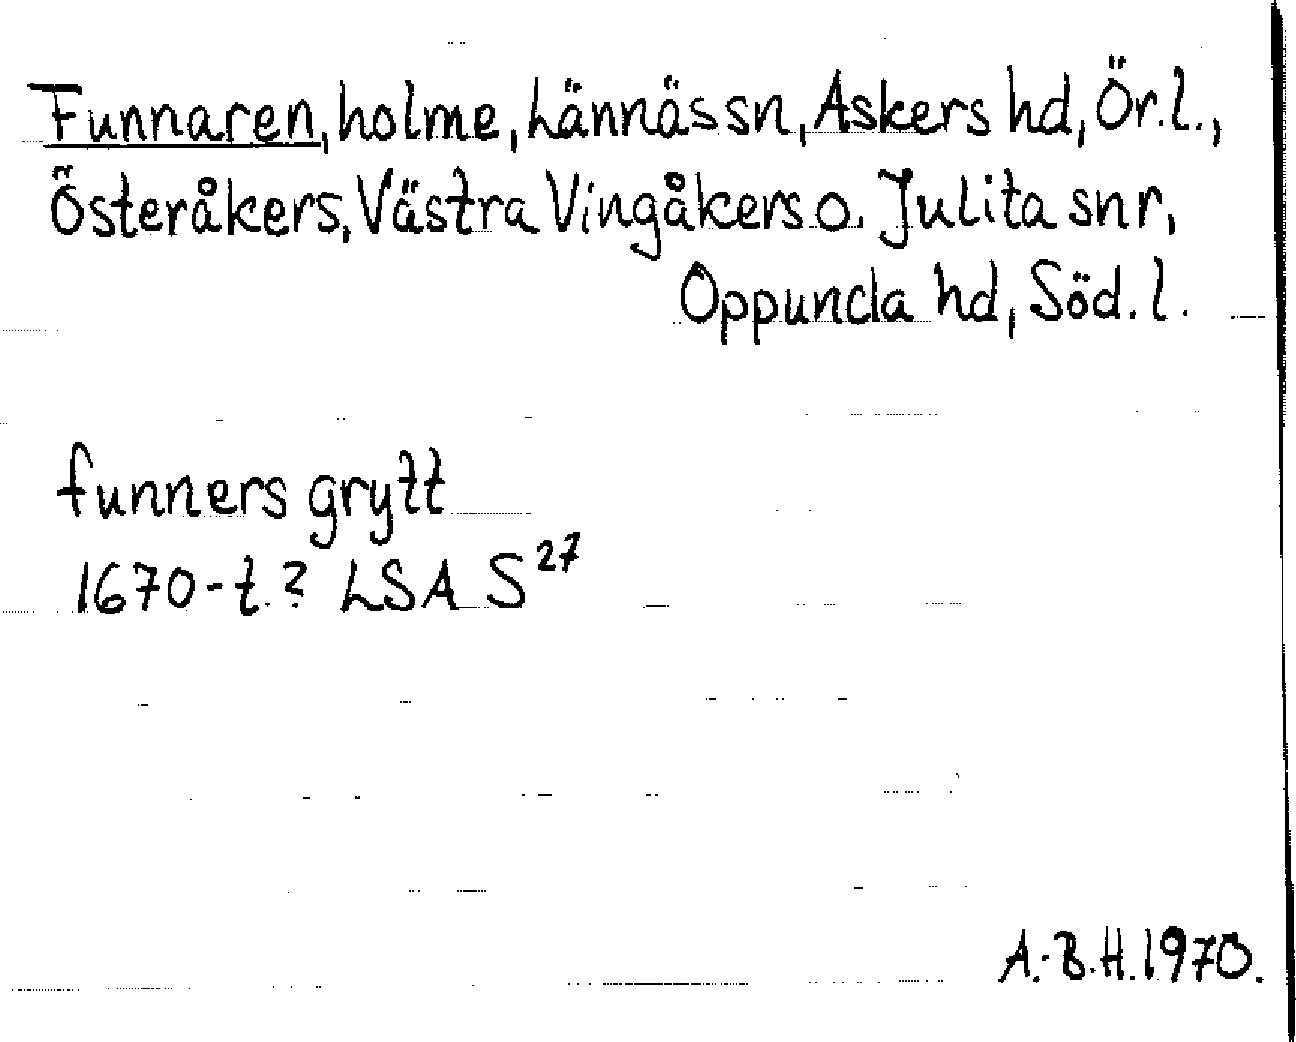 Funnaren, holme, Lännäs sn, Askers hd, Ör.l.,
Österåkers, Västra Vingåkers o. Julita snr,
Oppunda hd, Söd. l.
funners grytt
1670-t.? LSA S 27
A.-B.H. 1970.